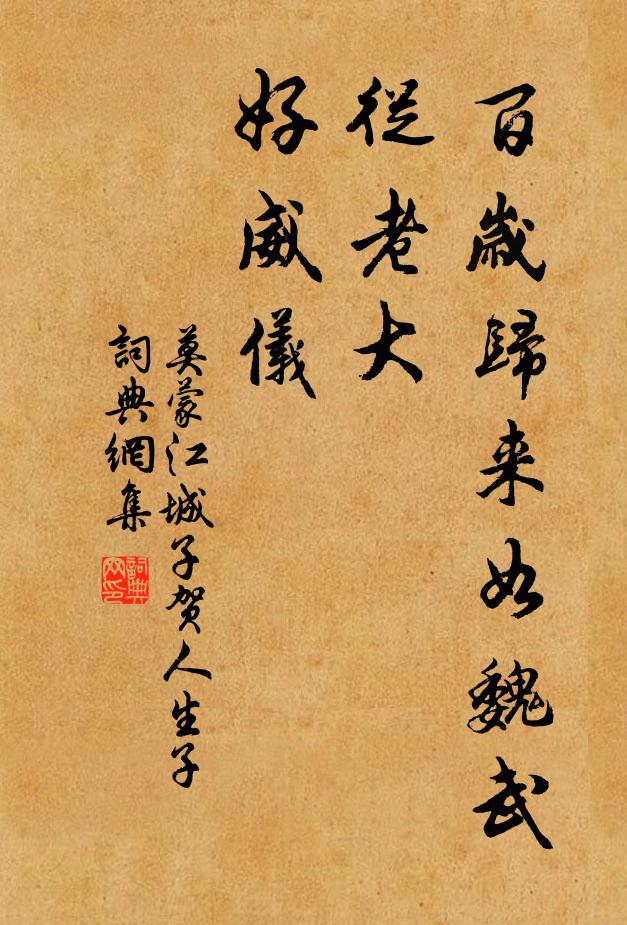 百歲歸来如魏武
從老大
好威儀
莫蒙江城子賀人生子
詞典網集
詞典网印